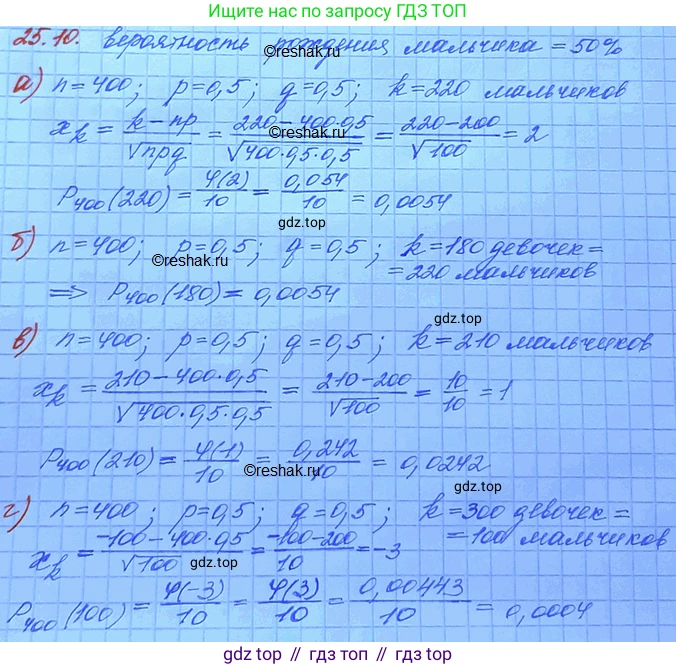 Ищите нас по запросу ГДЗ ТОП
25.10. вероятность рождения мальчика = 50%
©reshak.ru
а) n=400; p=0,5; q=0,5; k=220 мальчиков
x_k = (k-np)/√(npq) = (220-400·0,5)/√(400·0,5·0,5) = (220-200)/√100 = 2
©reshak.ru
P₄₀₀(220) = φ(2)/10 = 0,054/10 = 0,0054
gdz.top
б) n=400; p=0,5; q=0,5; k=180 девочек =
= 220 мальчиков
©reshak.ru
=> P₄₀₀(180) = 0,0054
gdz.top
в) n=400; p=0,5; q=0,5; k=210 мальчиков
x_k = (210-400·0,5)/√(400·0,5·0,5) = (210-200)/√100 = 10/10 = 1
P₄₀₀(210) = φ(1)/10 = 0,242/10 = 0,0242
©reshak.ru
gdz.top
г) n=400; p=0,5; q=0,5; k=300 девочек =
= 100 мальчиков
x_k = (-100-400·0,5)/√100 = (-100-200)/10 = -3
gdz.top
P₄₀₀(100) = φ(-3)/10 = φ(3)/10 = 0,00443/10 = 0,0004
gdz top // гдз топ // gdz.top